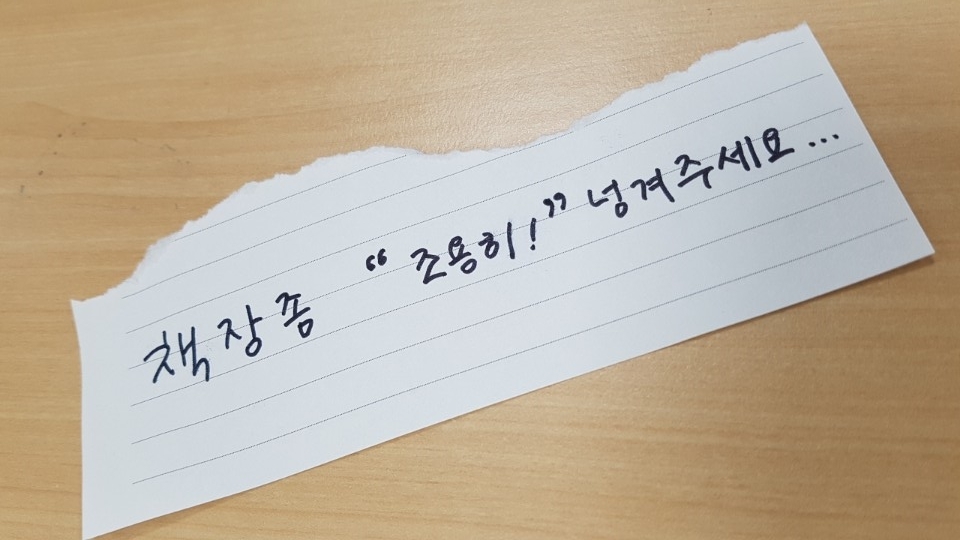 책장좀 “조용히!” 넝겨주세요...